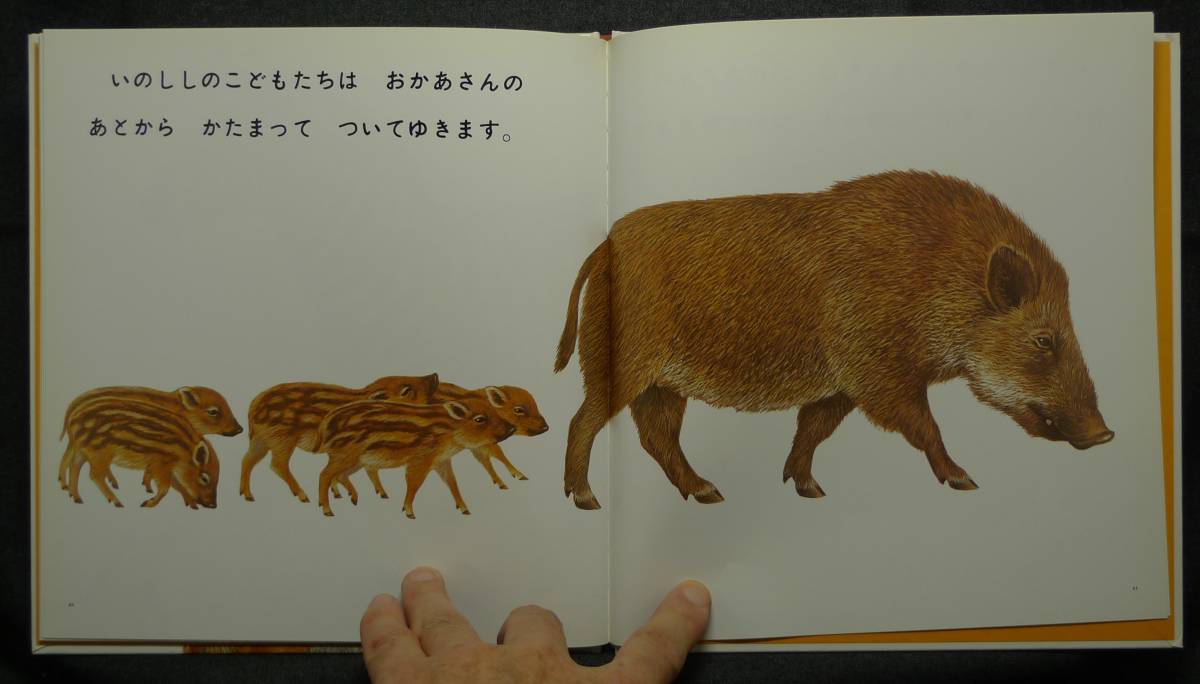 いのししのこどもたちは　おかあさんの
あとから　かたまって　ついてゆきます。